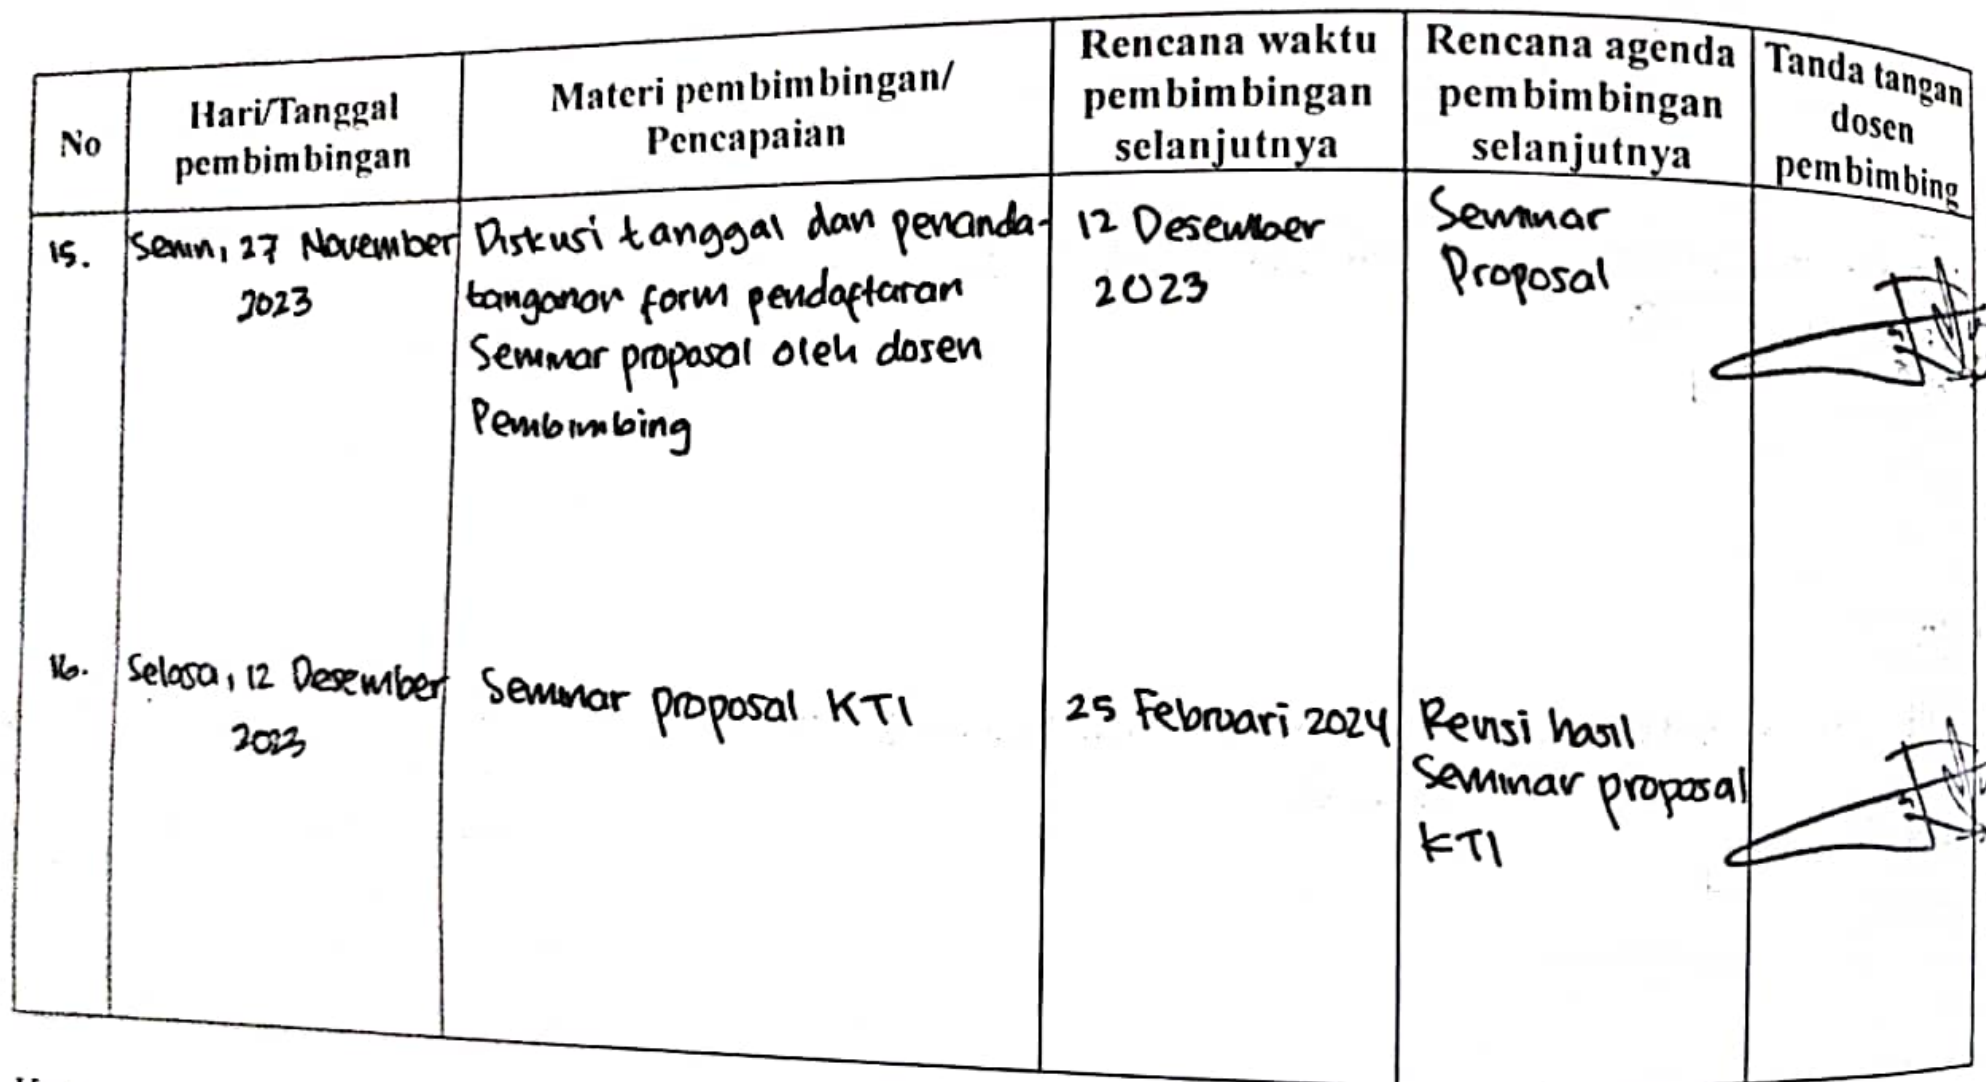 No
Hari/Tanggal
pembimbingan
Materi pembimbingan/
Pencapaian
Rencana waktu
pembimbingan
selanjutnya
Rencana agenda
pembimbingan
selanjutnya
Tanda tangan
dosen
pembimbing
15.
Senin, 27 November
2023
Diskusi tanggal dan penanda-
tanganan form pendaftaran
Seminar proposal oleh dosen
Pembimbing
12 Desember
2023
Seminar
Proposal
16.
Selasa, 12 Desember
2023
Seminar proposal KTI
25 Februari 2024
Revisi hasil
Seminar proposal
KTI